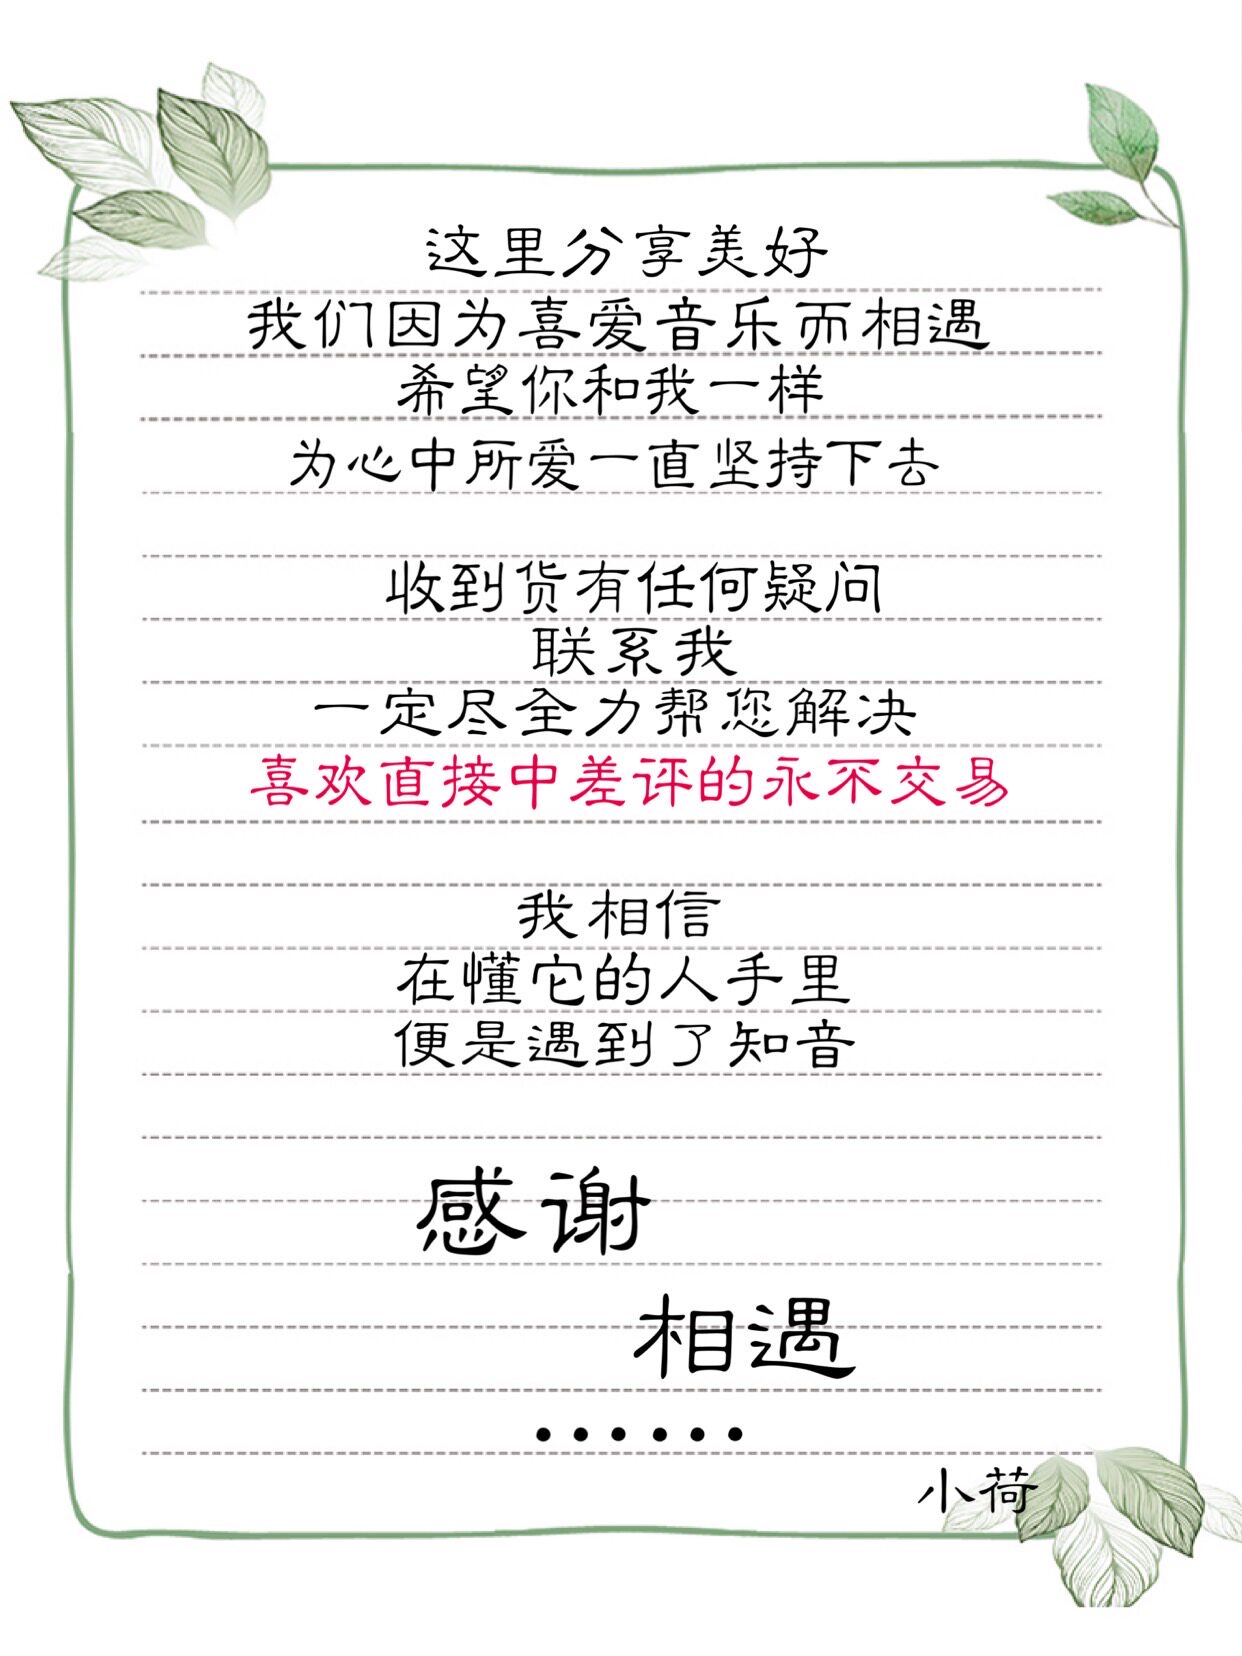 这里分享美好
我们因为喜爱音乐而相遇
希望你和我一样
为心中所爱一直坚持下去
收到货有任何疑问
联系我
一定尽全力帮您解决
喜欢直接中差评的永不交易
我相信
在懂它的人手里
便是遇到了知音
感谢
相遇
······
小荷